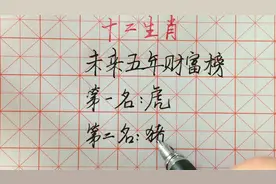 十二生肖
未来五年财富榜
第一名:虎
第二名:猪